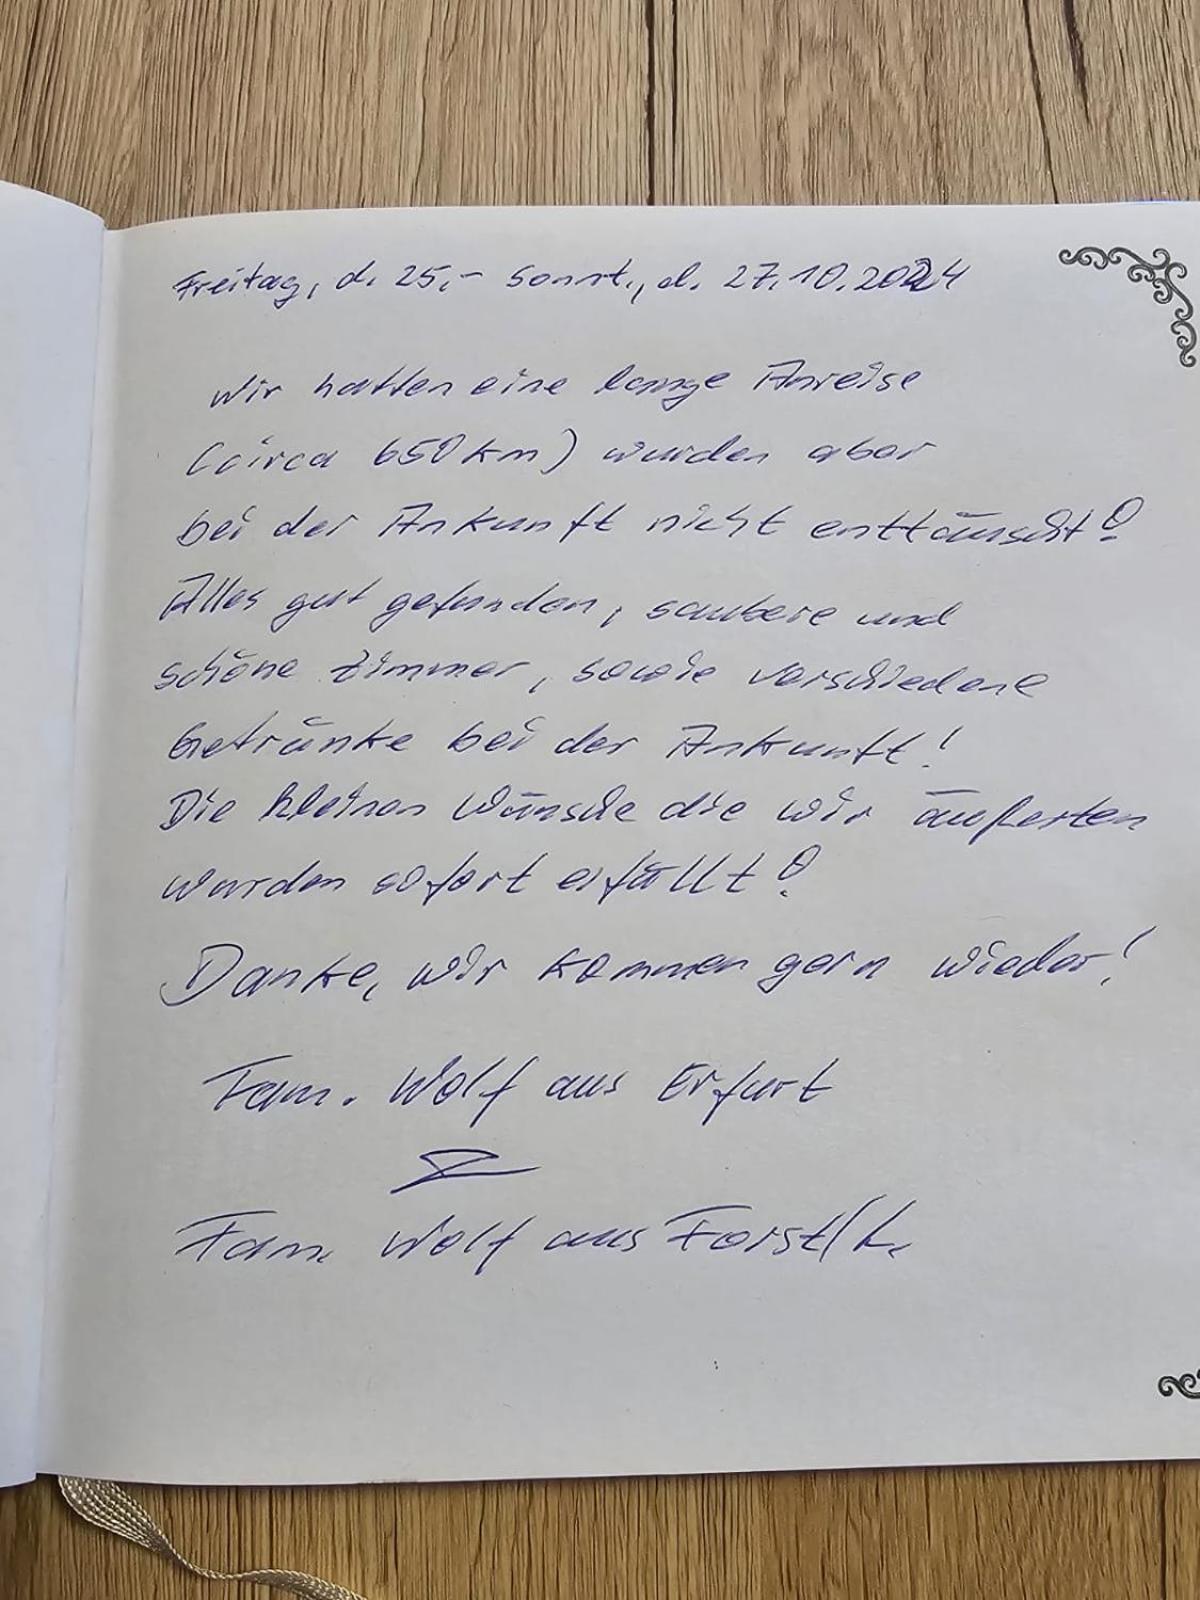 Freitag, d. 25.- Sonnt., d. 27.10.2024
Wir hatten eine lange Anreise
(circa 650 km) wurden aber
bei der Ankunft nicht enttäuscht!
Alles gut gefunden, saubere und
schöne Zimmer, sowie verschiedene
Getränke bei der Ankunft!
Die kleinen Wünsche die wir äußerten
wurden sofort erfüllt!
Danke, wir kommen gern wieder!
Fam. Wolf aus Erfurt
Fam. Wolf aus Forst/L.